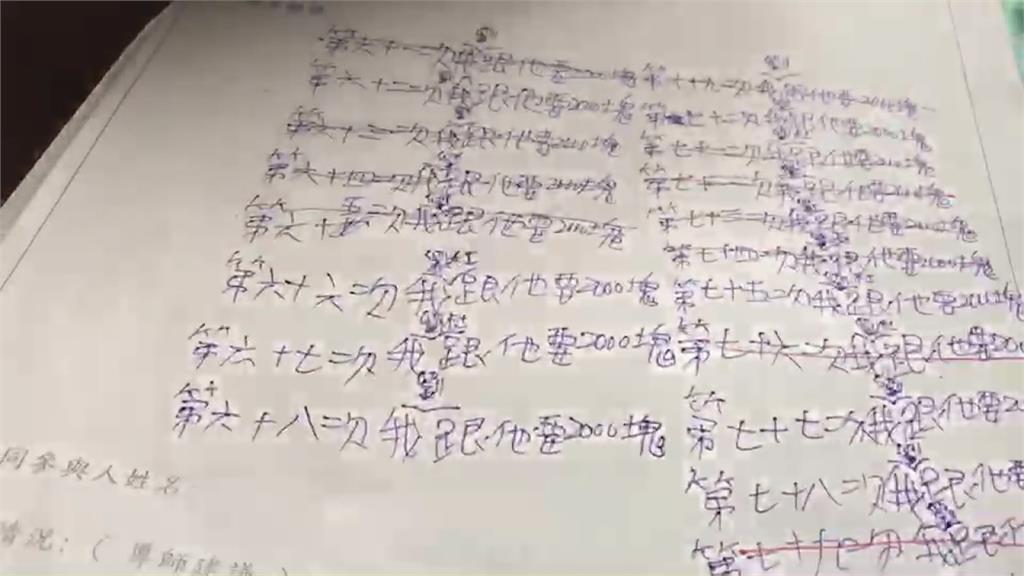 第六十一次我跟他要2000塊
第六十二次我跟他要2000塊
第六十三次我跟他要2000塊
第六十四次我跟他要2000塊
第六十五次我跟他要2000塊
第六十六次我跟他要2000塊
第六十七次我跟他要2000塊
第六十八次我跟他要2000塊
同參與人姓名
情況：( 導師建議 )
第十九次我跟他要2000塊
第七十次我跟他要2000塊
第七十一次我跟他要2000塊
第七十二次我跟他要2000塊
第七十三次我跟他要2000塊
第七十四次我跟他要2000塊
第七十五次我跟他要2000塊
第七十六次我跟他要200
第七十七次我跟他要200
第七十八次我跟他要
第七十九次我跟